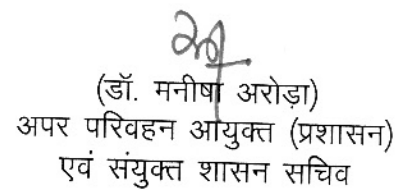 (डॉ. मनीषा अरोड़ा)
अपर परिवहन आयुक्त (प्रशासन)
एवं संयुक्त शासन सचिव